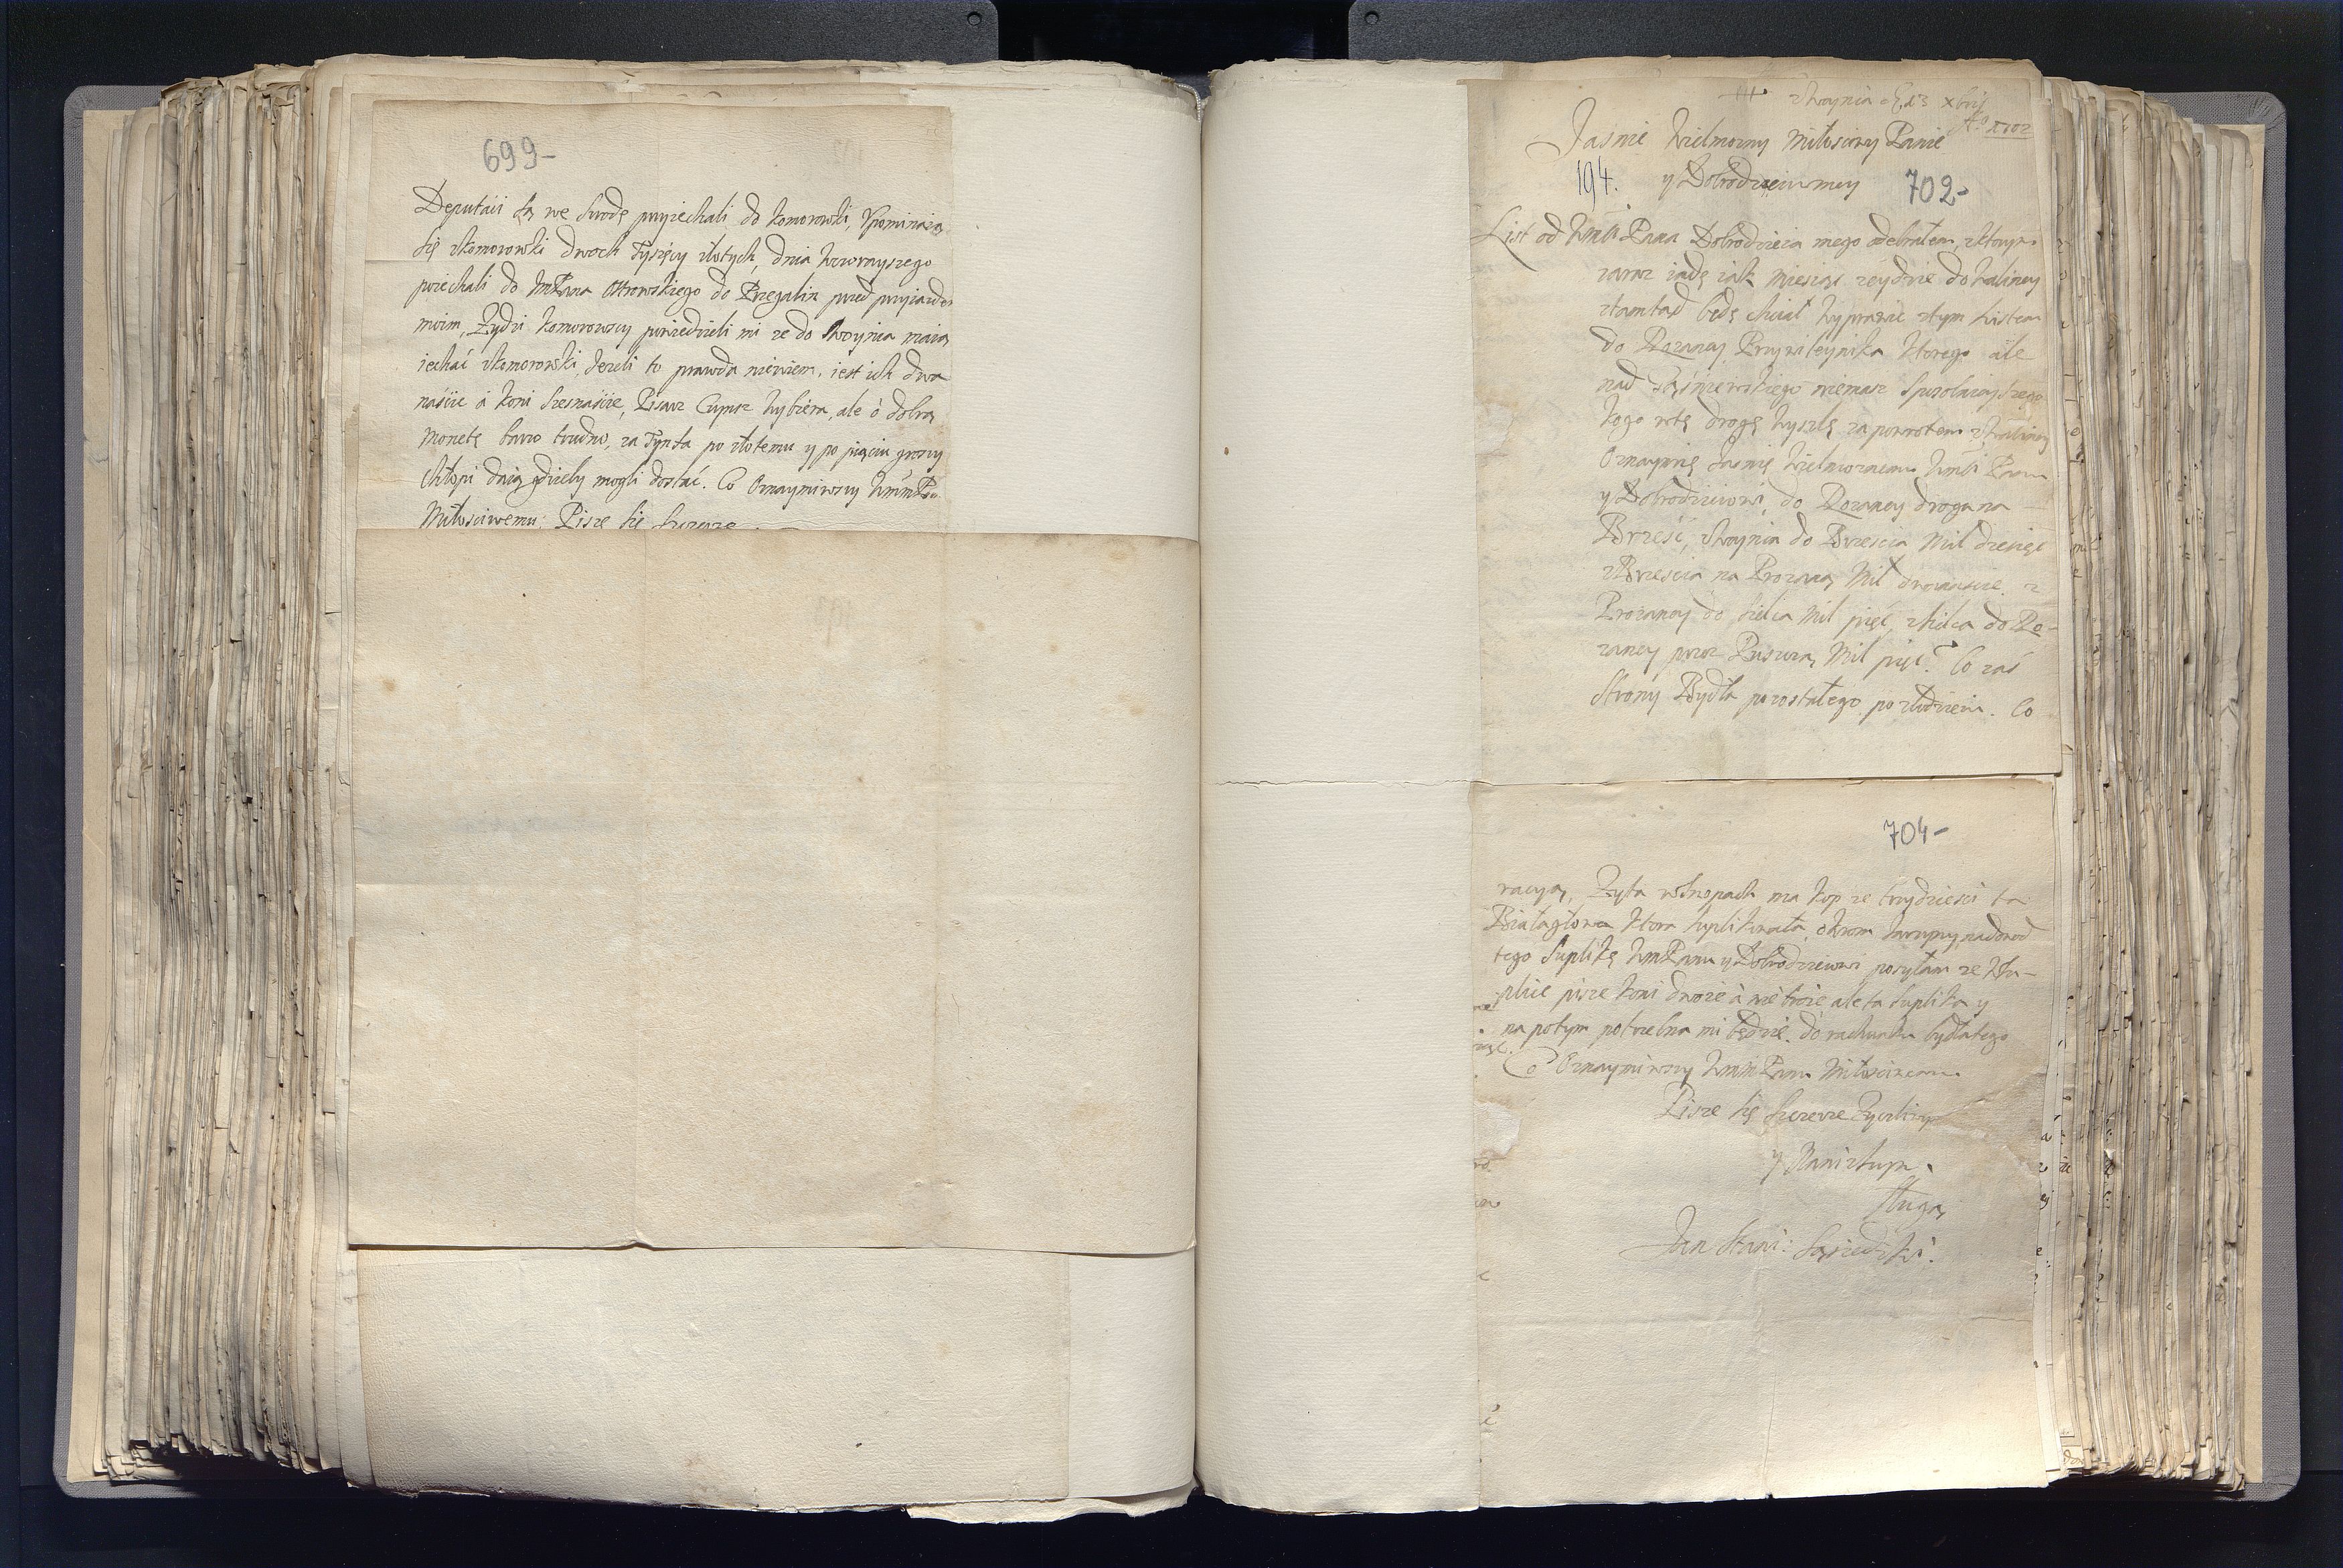 699-
Deputaci są we srodę przyiechali do Komorowki, Upominaią
się zKomorowki dwoch Tysięcy złotych, dnia wczorayszego
poiechali do ImPana Ostrowskiego do Przegalin przed przyiazdem
moim, Zydzi Komorowscy powiedzieli mi ze do Woynia maią
iechać zKomorowki, Jezeli to prawda niewiem, iest ich dwa
naście á koni szesnaście, Pisarz Czynsz wybiera, ale ó dobrą
monetę barzo trudno, za Tynfa po złotemu y po pięciu groszy
chłopi daią gdzieby mogli dostać. Co Oznaymiwszy WmmPanu
Miłosciwemu. Piszę się szczerze
zWoynia d. 3 Xbris
Ao 1702
Jasnie Wielmozny Miłosciwy Panie
y Dobrodzieiu moy
194.
702-
List od Wmści Pana Dobrodzieia mego odebrałem, zktorym
zaraz iadę iak miesiąc zeydzie do Kaliney
ztamtąd będę chciał wyprawic ztym Listem
do Rozaney Przywileynika ktorego ale
nad niemasz sposobnieyszego
kogo wtę drogę wyszlę za powrotem zKaliney
Oznaymię Jasnie Wielmoznemu Wmści Panu
y Dobrodzieiowi, do Rozaney droga na
Brześć, zWoynia do Brzescia Mil dziesięc
zBrzescia na Prozaną Mil dwanascie. z
Prozaney do Sielca Mil pięć, zSielca do Ro-
zaney przez Puszczą Mil pięć. Co zaś
strony Bydła pozostałego po złodzieiu. Co
704-
racyą, Zyta wSnopach ma kop ze trzydziesci ta
Białagłowa ktora suplikowała, okrom
tego Suplikę WmPanu y Dobrodzieiowi posyłam ze wSu-
plice pisze koni dwoie á nie troie ale ta suplika y
napotym potrzebna mi będzie do rachunku bydłatego
Co Oznaymiwszy WmmPanu Miłosciwemu
Piszę się szczerze Zyczliwym
y Nanizszym
sługą
Jan Stani: Sąsiedzki.